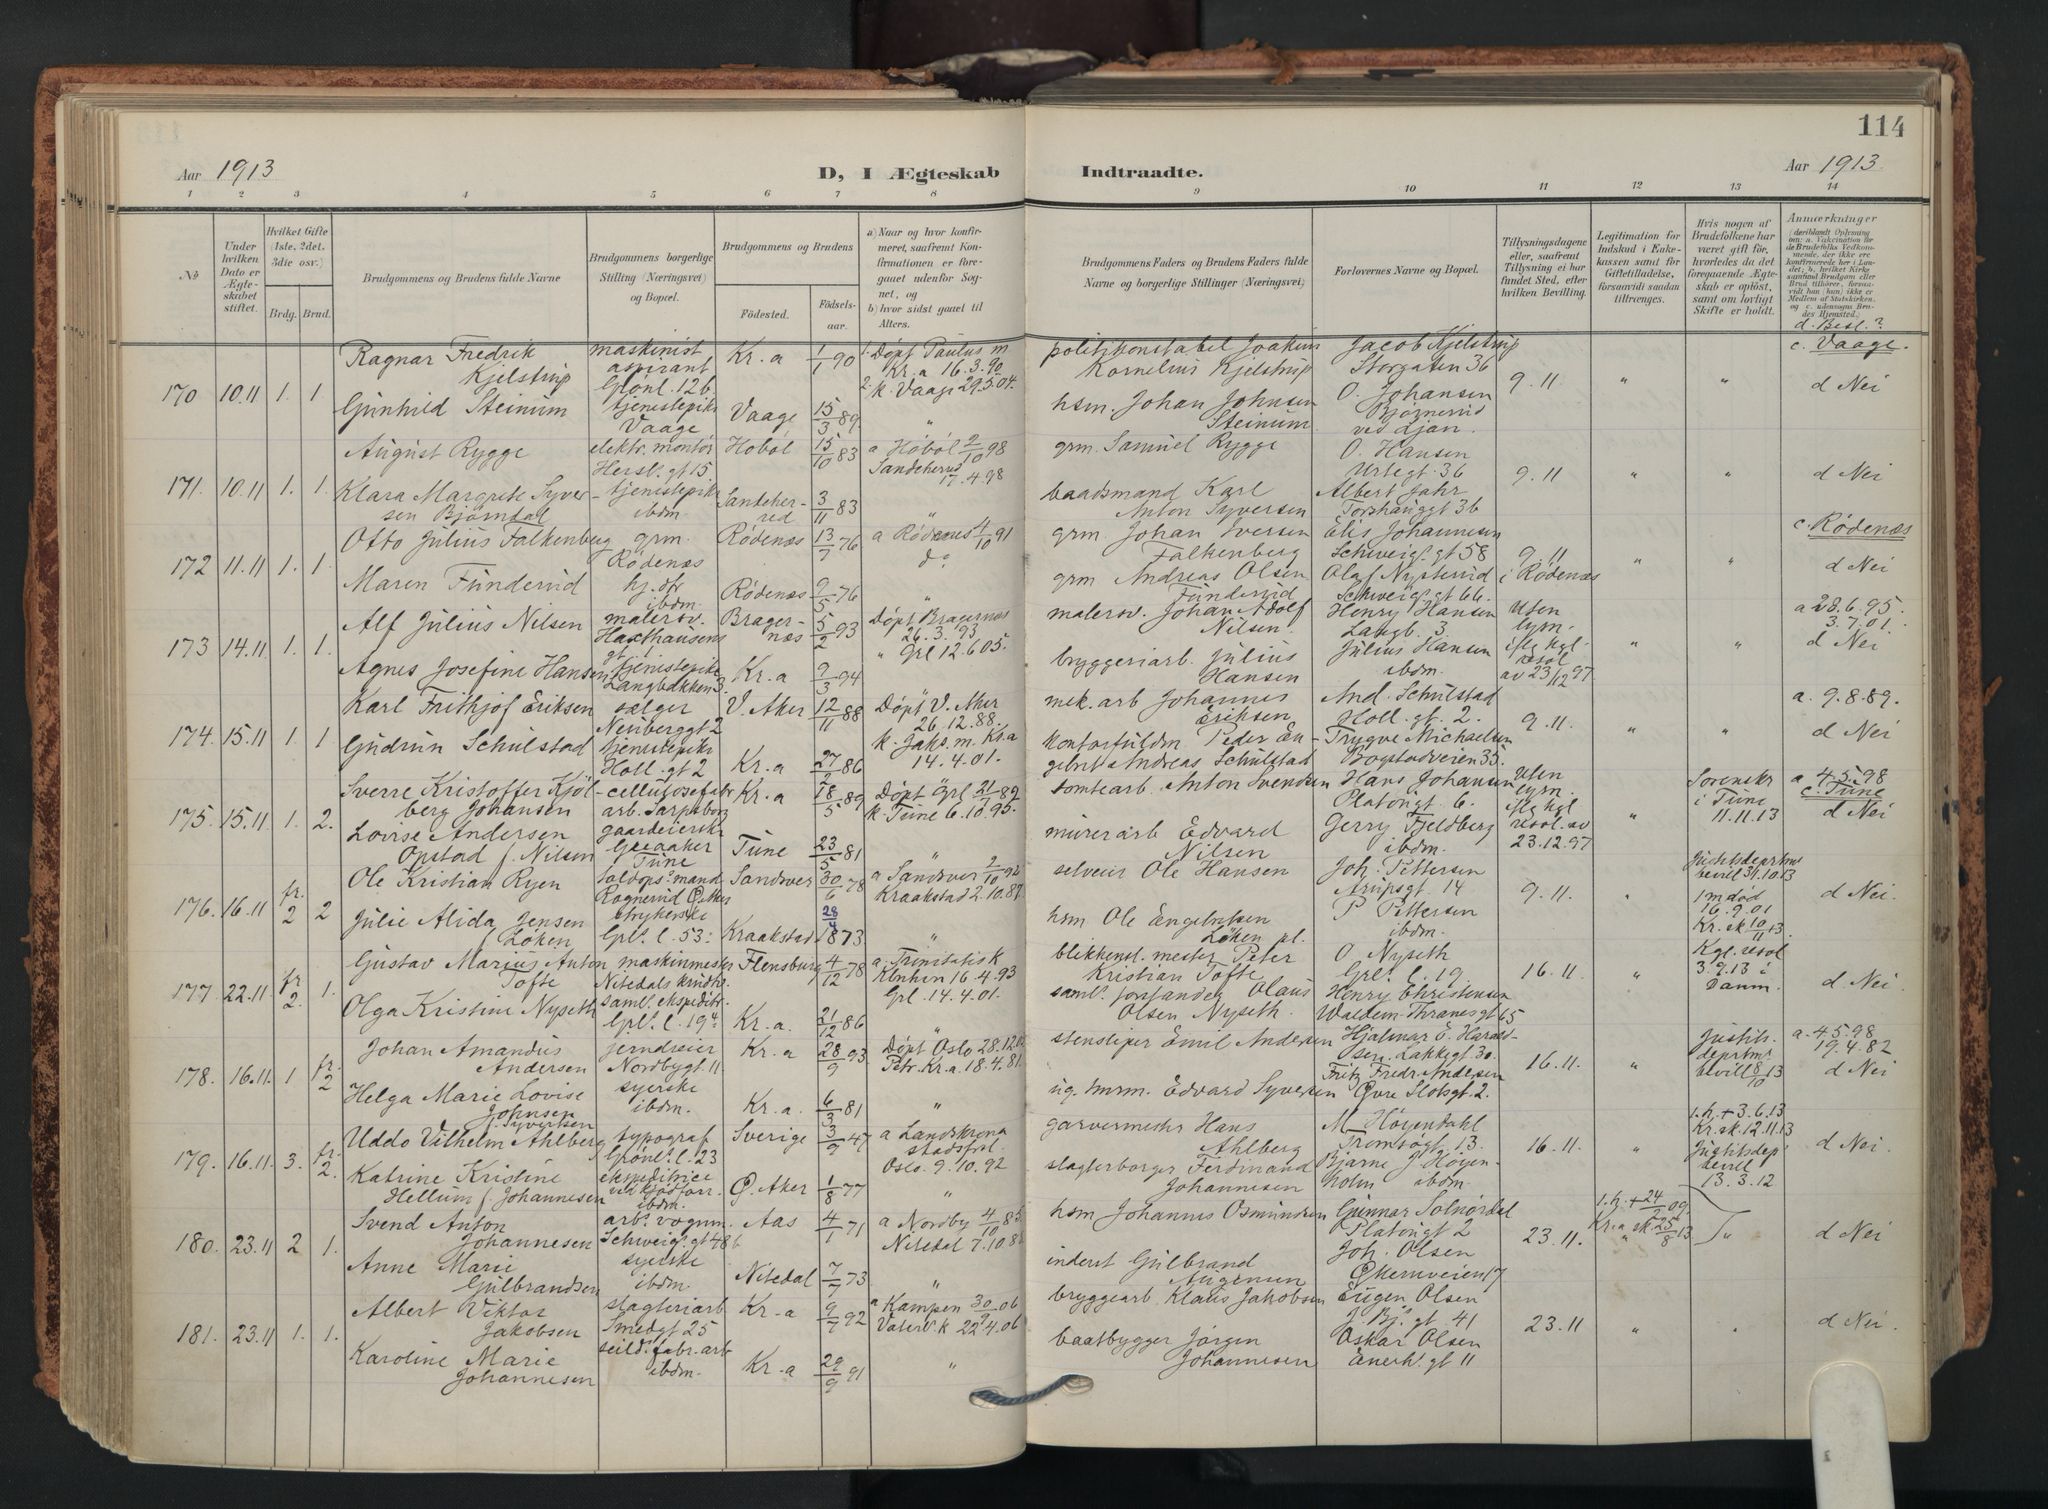 114
Aar 1913
D, I Ægteskab Indtraadte.
Aar 1913.
1 2 3 4 5 6 7 8 9 10 11 12 13 14
No
Under hvilken Dato er Ægteskabet stiftet.
Hvilket Gifte (1ste, 2det, 3die osv.)
Brdg. Brud.
Brudgommens og Brudens fulde Navne
Brudgommens borgerlige Stilling (Næringsvei) og Bopæl.
Brudgommens og Brudens
Fødested. Fødselsaar.
a) Naar og hvor konfirmeret, saafremt Konfirmationen er foregaaet udenfor Sognet, og
b) hvor sidst gaaet til Alters.
Brudgommens Faders og Brudens Faders fulde Navne og borgerlige Stillinger (Næringsvei)
Forlovernes Navne og Bopæl.
Tillysningsdagene eller, saafremt Tillysning ei har fundet Sted, efter hvilken Bevilling.
Legitimation for Indskud i Enkekassen samt for Giftetilladelse, forsaavidt saadan tiltrænges.
Hvis nogen af Brudefolkene har været gift før, hvorledes da det foregaaende Ægteskab er opløst, samt om lovligt Skifte er holdt.
Anmærkninger
d. Besl.?
170 10.11 1. 1
Ragnar Fredrik Kjelstrup
maskinist aspirant Grönl. 12b
Kr.a 1/1 90
1. Döpt Paulus m Kr.a 16.3.90
2. k. Vaage 29.5.04.
politikonstabel Joakim Kornelius Kjelstrup
Jacob Kjelstrup Storgaten 36
9.11 " "
c. Vaage.
d Nei
Gunhild Steinum
tjenestepike Vaage
Vaage 15/3 89. "
hsm. Johan Johnsen Steinum
O. Johansen Bjørnerud ved Ljan.
171. 10.11 1. 1.
August Rygge
elektr. montør Hersl. gt 15
Hobøl 15/10 83
a Höböl 2/10 98
Sandeherred 17.4.98
grm. Samuel Rygge
O. Hansen Urtegt. 36
9.11 " "
d Nei
Klara Margrete Syversen Bjørndal
tjenestepike ibdm.
Sandeherred 3/11 83 "
baadsmand Karl Anton Syversen
Albert Jahr Torshauggt 36
172 11.11 1. 1.
Otto Julius Falkenberg
grm. Rödenæs
Rödenæs 13/7 76
a Rödenes 4/10 91
do
grm. Johan Iversen Falkenberg
Elis Johannesen Schweigs. gt 58
9.11 i Rödenæs " "
c. Rödenæs
d Nei
Maren Funderud
hj. dtr ibdm.
Rödenæs 9/5 76 "
grm Andreas Olsen Funderud
Olaf Nysterud Schweigs. gt 66.
173 14.11 1. 1.
Alf Julius Nilsen
malersv. Haxthausens gt 1
Bragernæs 5/2 93
Döpt Bragernæs 26.3.93
" Grl 12.6 05.
malersv. Johan Adolf Nilsen.
Henry Hansen Langb. 3
Uten lysn. iflg kgl. resol av 23/12 97 " "
a 28.6.95. 3.7.01.
d Nei
Agnes Josefine Hansen
tjenestepike Langbakken 3.
Kr.a 9/3 94 "
bryggeriarb. Julius Hansen
Julius Hansen ibdm.
174. 15.11 1. 1
Karl Frithjof Eriksen
sælger Neuberggt 2
V. Aker 12/11 88
Döpt V. Aker 26.12.88.
k. Jaks. m. Kr.a 14.4.01.
mek. arb Johannes Eriksen
And. Schulstad Holl. gt. 2.
9.11. " "
a. 9.8.89.
d Nei
Gudrun Schulstad
tjenestepike Holl. gt 2
Kr.a 27/2 86
kontorfuldm. Peder Engebret Andreas Schulstad
Trygve Michaelsen Bogstadveien 35.
175. 15.11 1. 2.
Sverre Kristoffer Kjölberg Johansen
cellulosefabr arb. Sarpsborg
Kr.a 18/5 89
Döpt Grl 21/7 89
k. Tune 6.10.95.
tomtearb. Anton Svendsen
Hans Johansen Platousgt 6.
Uten lysn. iflg kgl resol. av 23.12.97 "
Sorenskr i Tune 11.11.13
a. 4.5.98
c. Tune
d Nei
Lovise Andersen Opstad f. Nilsen
gaardeierske Greaaker Tune
Tune 23/5 81 "
murerarb Edvard Nilsen
Gerry Fjeldberg ibdm.
176. 16.11 fr. 2 2
Ole Kristian Ryen
Sandsver 30/6 78
a Sandsver 2/10 92
Kraakstad 2.10.87.
selveier Ole Hansen
Joh. Pettersen Arupsgt. 14
9.11. "
Justitsdeprtms bevil 31.10 13
1 m død 16.9.01 Kr. sk 10/11 13
d Nei.
Julie Alida Jensen f. Löken
strykerske Grl. l. 53.
Kraakstad 28/4 1873 "
hsm Ole Engebretsen Løken pl.
P Pettersen ibdm.
177. 22.11 fr 2. 1.
Gustav Marius Anton Tofte
maskinmester Nitedals krudtv.
Flensburg 4/12 78
a. Trinitatis k Kbnhvn 16.4.93
Grl. 14.4.01.
blikkensl. mester Peter Kristian Tofte
O Nyseth Grl. l. 19.
16.11. "
Kgl. resol 3.9.13 i Danm.
d. Nei.
Olga Kristine Nyseth
saml. ekspeditr. Grl. l. 19
Kr.a. 21/12 86 "
saml. forstander Olaus Olsen Nyseth.
Henry Christensen Waldem. Thranesgt 65
178. 16.11. 1 fr. 2
Johan Amandus Andersen
jerndreier Nordbygt. 11
Kr.a 28/9 93
Döpt Oslo 28.12
Petr. Kr.a. 18.4.81.
stensliper Emil Andersen
Hjalmar E. Haraldsen. Lakkegt. 30.
16.11. "
Justits. deprtms bevill 8/10 13
a. 4.5.98 19.4.82
d Nei
Helga Marie Lovise Johnsen f. Syvertsen
syerske ibdm.
Kr.a. 6/3 81 "
Edvard Syversen
Fritz Fredr. Andersen Övre Slotsgt. 2.
179. 16.11. 3. fr. 2.
Uddo Vilhelm Ahlberg
typograf Grönl. l. 23
Sverige 3/9 47
a Landskrona stadsfrsl.
Oslo. 9.10.92
garvermester Hans Ahlberg
M Höyendahl Tromsögt. 13.
16.11. "
1. h. + 3.6.13 Kr. sk. 12.11.13
Justitsdep bevill 13.3.12
d Nei.
Katrine Kristine Hellum f. Johannesen
ekspeditrice ved kjødforr. ibdm.
Ø. Aker 1/8 77 "
slagterborger Ferdinand Johannesen
Bjarne J. Höyenholm ibdm.
180. 23.11 2 1.
Svend Anton Johannesen
arb. vognm. Schweigs. gt 48b
Aas 4/1 71
a Nordby 4/10 85.
Nitedal 7.10.8
hsm Johannes Osmundsen
Gunnar Solnördal Platousgt 2
23.11.
1. h. + 24/2 09. Kr.a sk 25/8 13 "
d Nei
Anne Marie Gulbrandsen
syerske ibdm.
Nitedal 7/7 73 "
inderst Gulbrand Augensen
Joh. Olsen Økernveien 17
181. 23.11 1. 1.
Albert Viktor Jakobsen
slagteriarb Smedgt 25
Kr.a 9/7 92
a Kampen 30/9 06
Vaterl. k 22.4.06
bryggearb. Klaus Jakobsen
Eugen Olsen J. Bj. gt 41
23.11 " "
d Nei
Karoline Marie Johannesen
seild. fabr. arb ibdm.
Kr.a 29/9 91 "
baatbygger Jørgen Johannesen
Oskar Olsen Enerh. gt 11